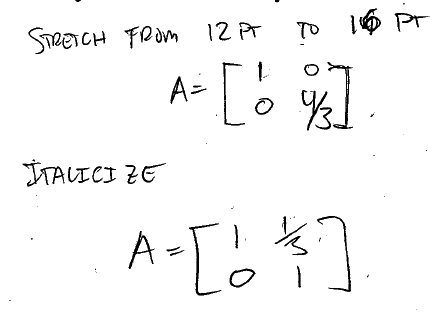 STRETCH FROM 12 PT TO 16 PT
A = [ 1 0
0 4/3 ].
ITALICIZE
A = [ 1 1/3
0 1 ].